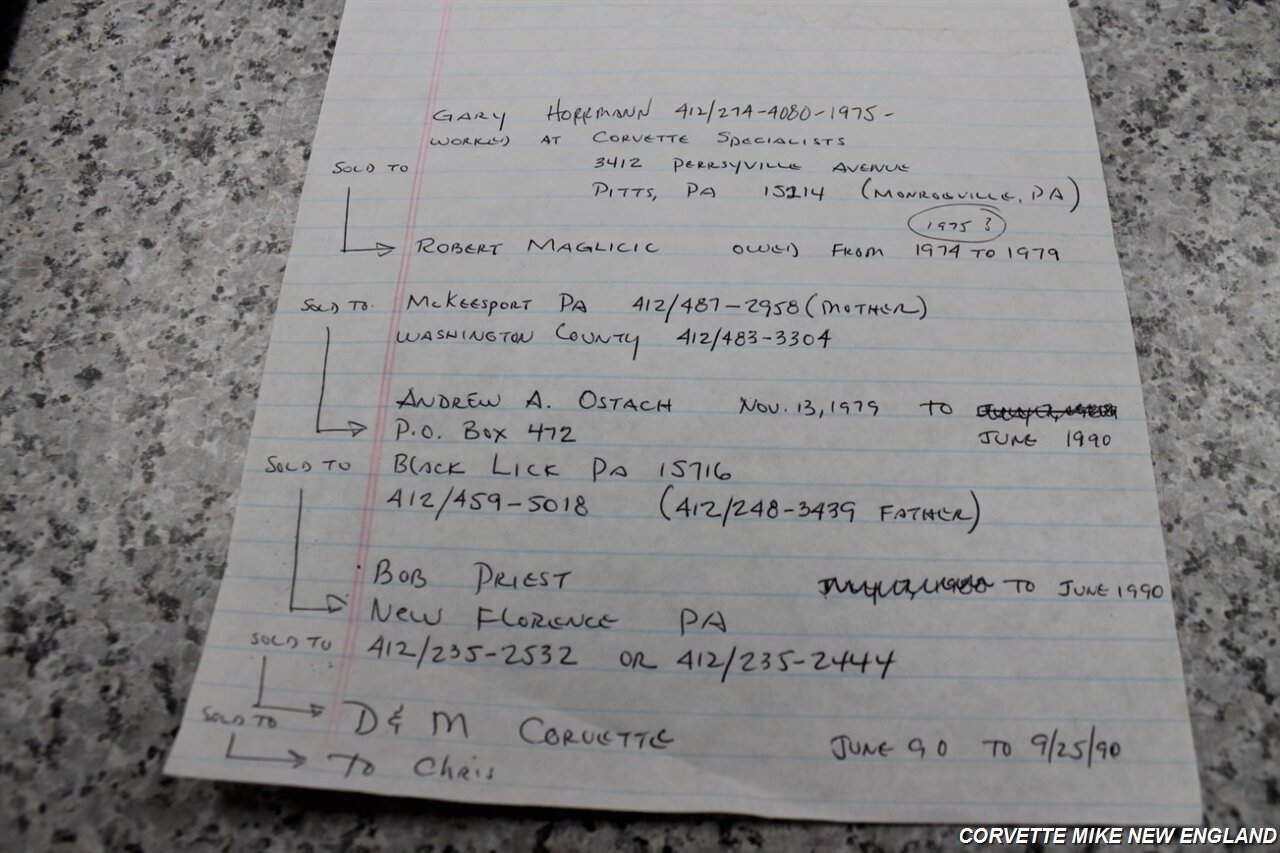 GARY HOFFMANN 412/274-4080-1975-
WORKED AT CORVETTE SPECIALISTS
3412 PERRSYVILLE AVENUE
SOLD TO
PITTS, PA 15214 (MONROEVILLE, PA)
1975?
ROBERT MAGLICIC OWED FROM 1974 TO 1979
SOLD TO. MCKEESPORT PA 412/487-2958 (MOTHER)
WASHINGTON COUNTY 412/483-3304
ANDREW A. OSTACH NOV. 13, 1979 TO
P.O. BOX 472 JUNE 1990
SOLD TO BLACK LICK PA 15716
412/459-5018 (412/248-3439 FATHER)
BOB PRIEST TO JUNE 1990
NEW FLORENCE PA
SOLD TO 412/235-2532 OR 412/235-2444
D & M CORVETTE JUNE 90 TO 9/25/90
SOLD TO
TO Chris
CORVETTE MIKE NEW ENGLAND